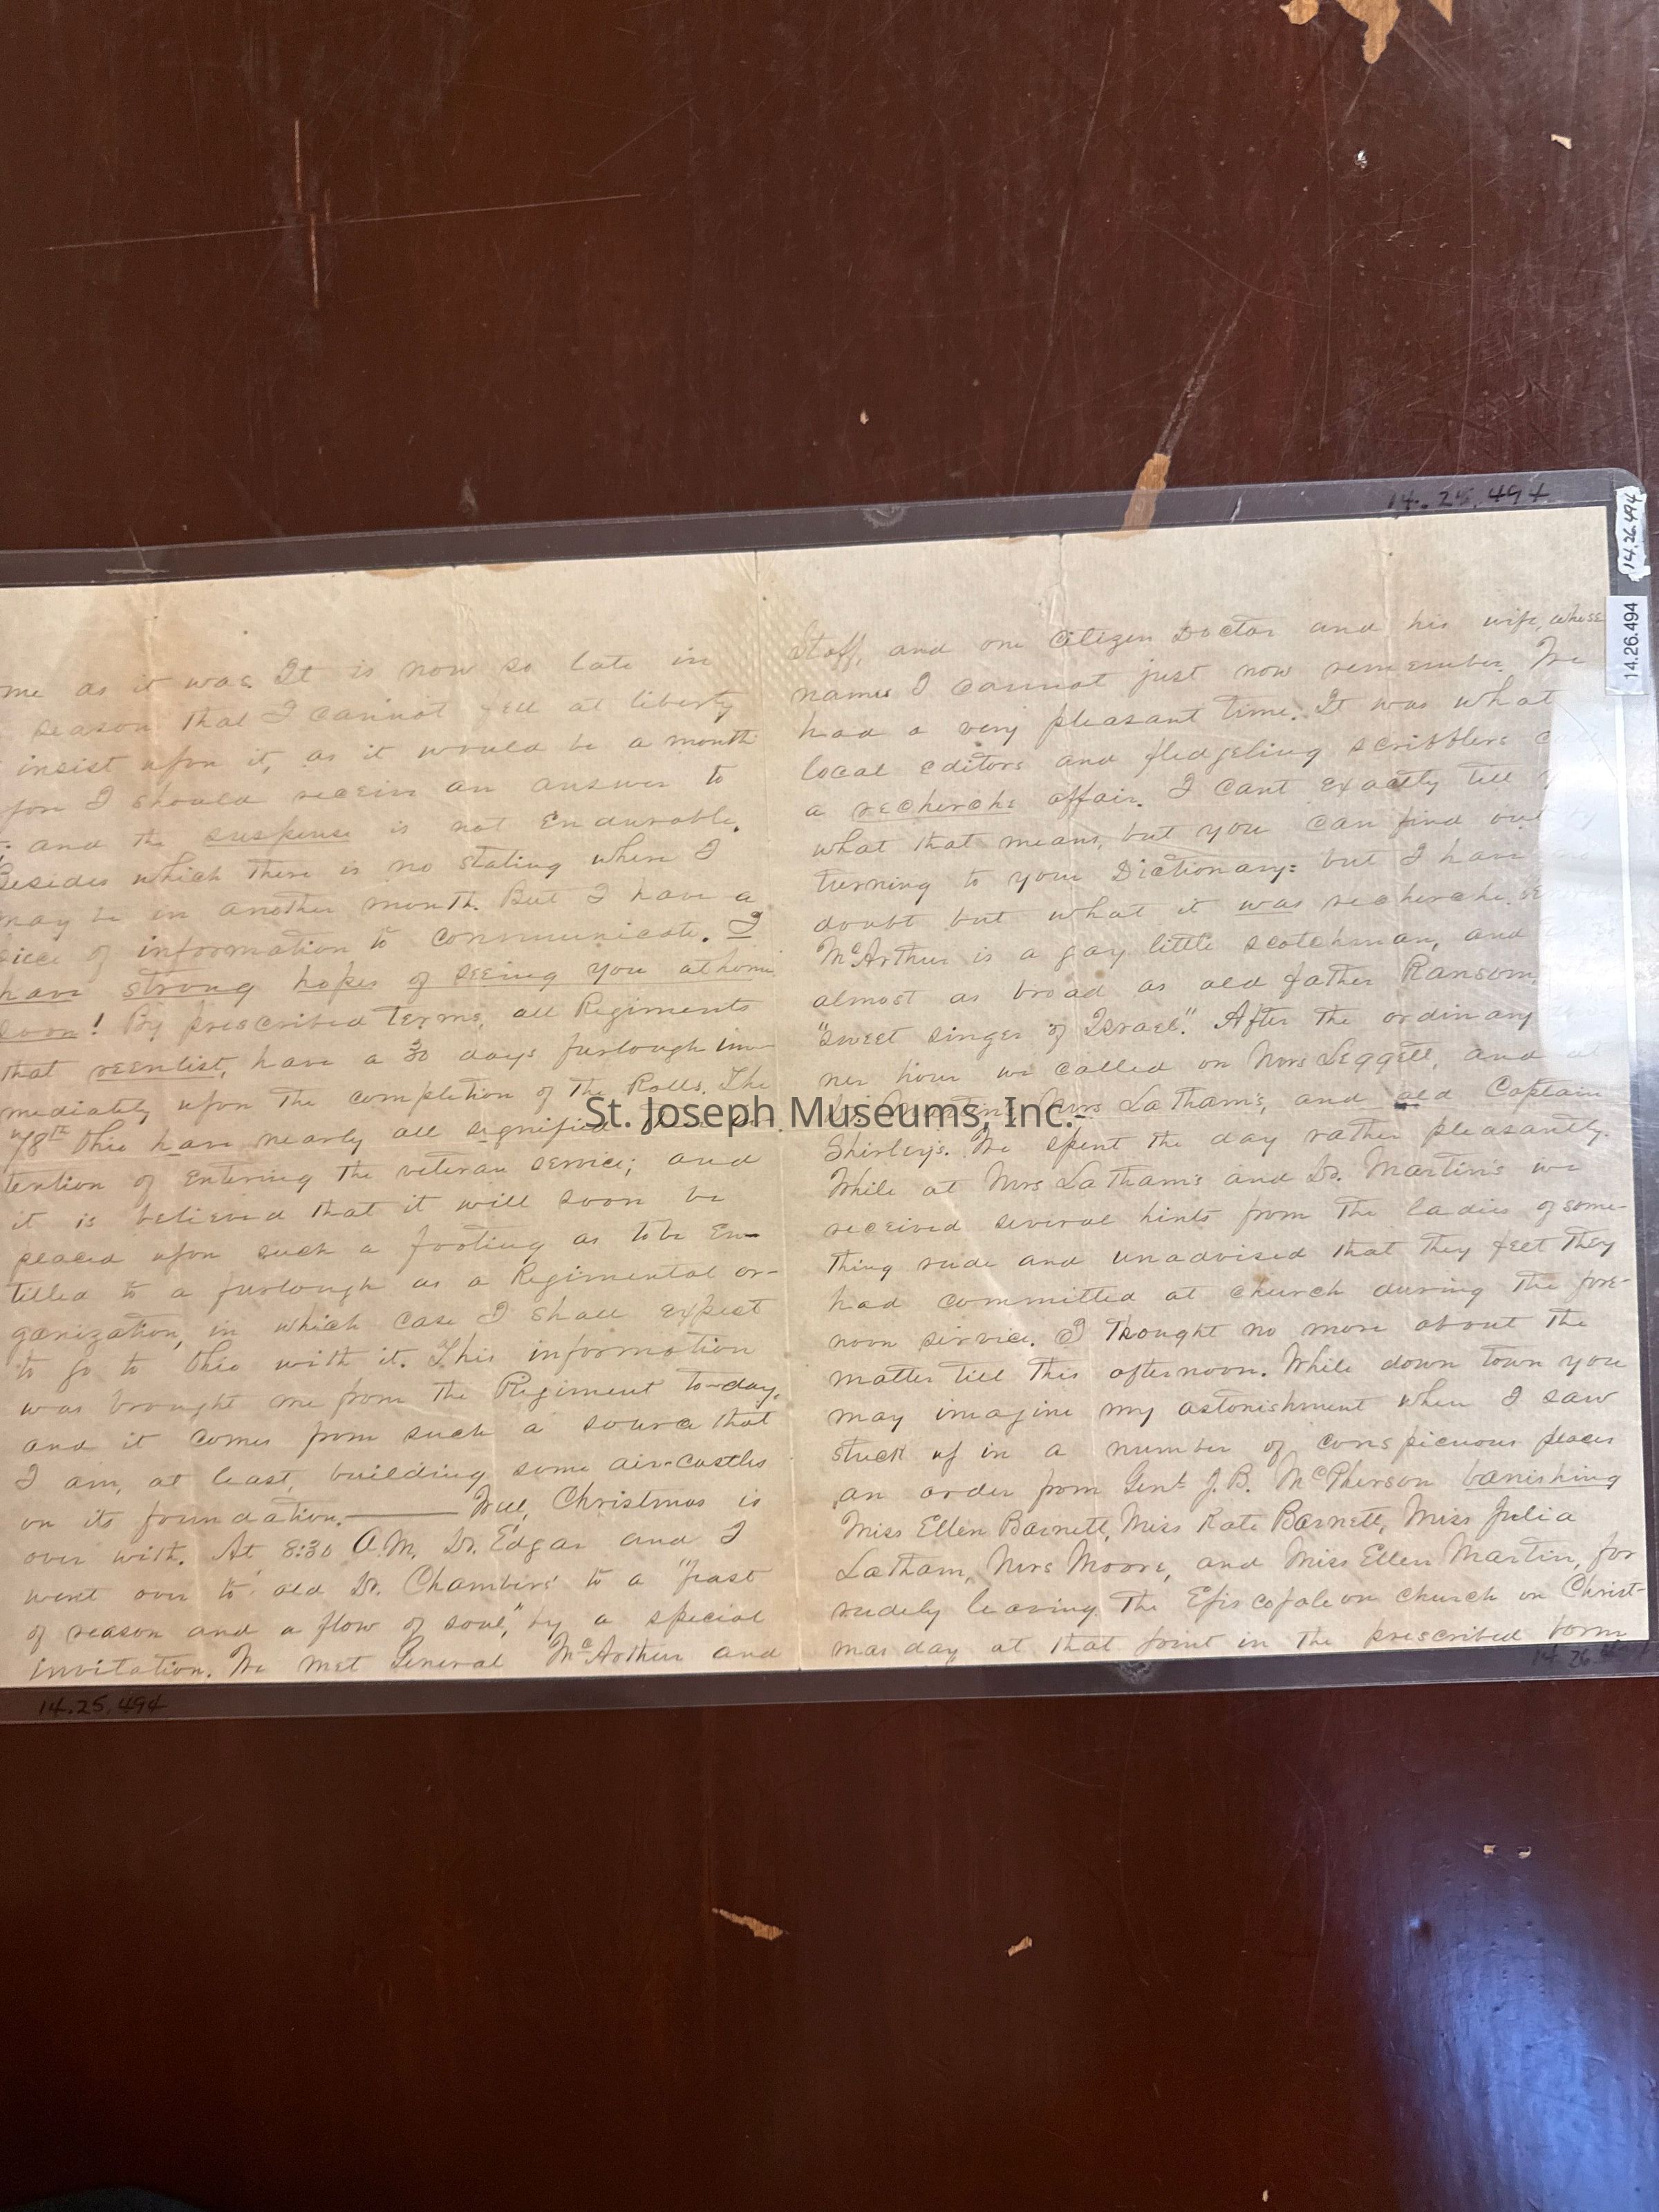 14.25.494
14.26.494
14.26.494
me as it was. It is now so late in
season that I cannot feel at liberty
insist upon it, as it would be a month
fore I should receive an answer to
and the suspense is not Endurable.
Besides which there is no stating where I
may be in another month. But I have a
piece of information to communicate. I
have strong hopes of seeing you at home
soon! By prescribed terms, all Regiments
that reenlist, have a 30 days furlough im-
mediately upon the completion of the Rolls. The
78th Ohio have nearly all signified their in-
tention of entering the veteran service; and
it is believed that it will soon be
placed upon such a footing as to be En-
titled to a furlough as a Regimental or-
ganization, in which case I shall expect
to go to Ohio with it. This information
was brought me from the Regiment to-day,
and it comes from such a source that
I am, at least, building some air-castles
on its foundation. Well, Christmas is
over with. At 8:30 A.M. Dr. Edgar and I
went over to old Dr. Chambers' to a "feast
of reason and a flow of soul," by a special
invitation. We met General McArthur and
Staff, and one Citizen Doctor and his wife, whose
names I cannot just now remember. We
had a very pleasant time. It was what
local editors and fledgeling scribblers c
a recherche affair. I cant exactly tell
what that means, but you can find out by
turning to your Dictionary: but I have no
doubt but what it was recherche.
McArthur is a gay little scotchman, and
almost as broad as old father Ransom,
"sweet singer of Israel." After the ordinary
ner hour we called on Mrs Leggett, and at
Martin's, Mrs Latham's, and old Captain
Shirley's. We spent the day rather pleasantly.
While at Mrs Latham's and Dr. Martin's we
received several hints from the ladies of some-
thing rude and unadvised that they felt they
had committed at church during the fore-
noon service. I thought no more about the
matter till this afternoon. While down town you
may imagine my astonishment when I saw
stuck up in a number of conspicuous places
an order from Genl J. B. McPherson banishing
Miss Ellen Barnett, Miss Kate Barnett, Miss Julia
Latham, Mrs Moore, and Miss Ellen Martin, for
rudely leaving the Episcopaleon church on Christ-
mas day at that point in the prescribed form
14.25.494
14.26.494
St. Joseph Museums, Inc.